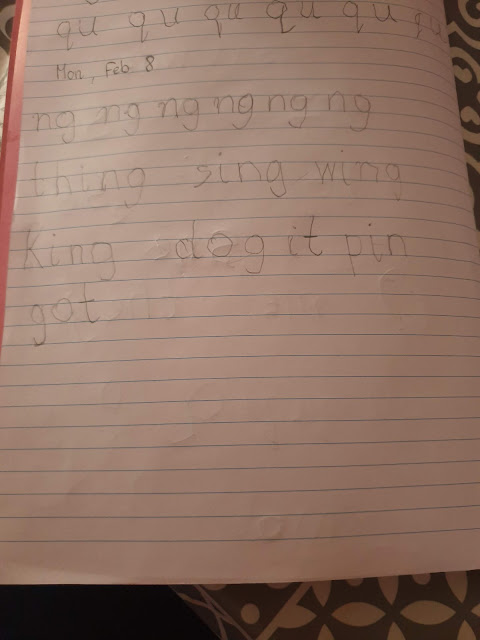 qu qu qu qu qu qu
Mon, Feb 8
ng ng ng ng ng ng
thing sing wing
King dog it pin
got